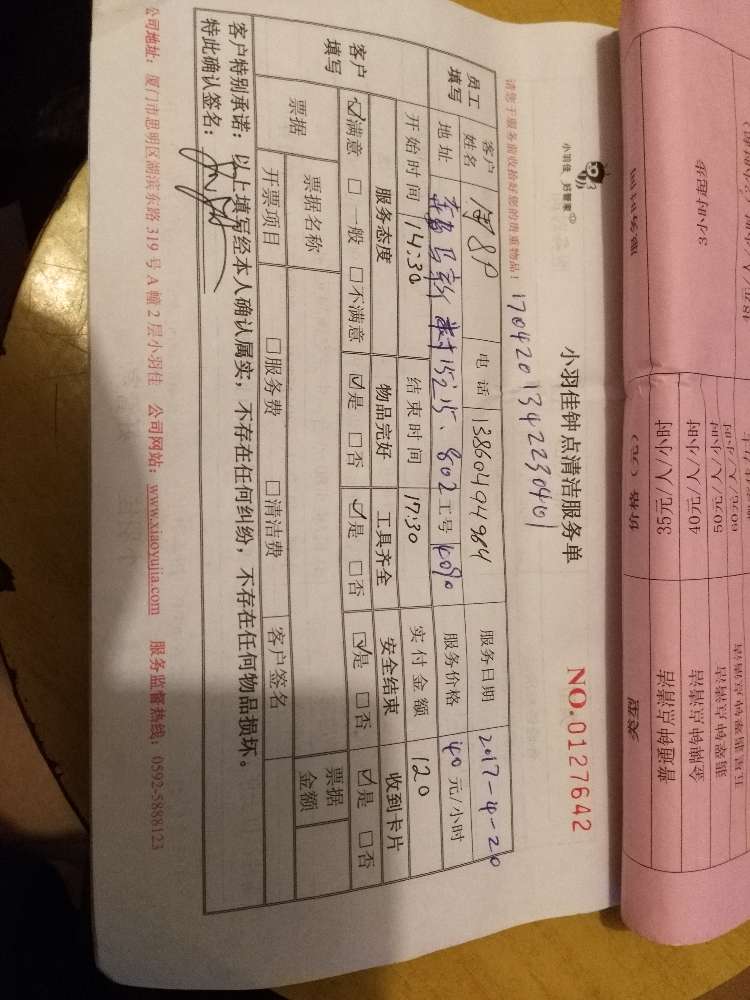 小羽佳 好管家
小羽佳钟点清洁服务单
NO.0127642
1704201342230401
请您于服务前收拾好您的贵重物品!
员工填写
客户姓名 电话 13860494984 服务日期 2017-4-20
地址 15215、802 工号 4090 服务价格 40 元/小时
开始时间 14:30 结束时间 17:30 实付金额 120
客户填写
服务态度 物品完好 工具齐全 安全结束 收到卡片
☑满意 □一般 □不满意 ☑是 □否 ☑是 □否 ☑是 □否 ☑是 □否
票据 票据名称 票据金额
开票项目 □服务费 □清洁费 客户签名
客户特别承诺:以上填写经本人确认属实,不存在任何纠纷,不存在任何物品损坏。
特此确认签名:
公司地址:厦门市思明区湖滨东路 319 号 A 幢 2 层小羽佳 公司网站:www.xiaoyujia.com 服务监督热线:0592-5888123
类型
普通钟点清洁 35元/人/小时
金牌钟点清洁 40元/人/小时
50元/人/小时
60元/人/小时
3小时起步